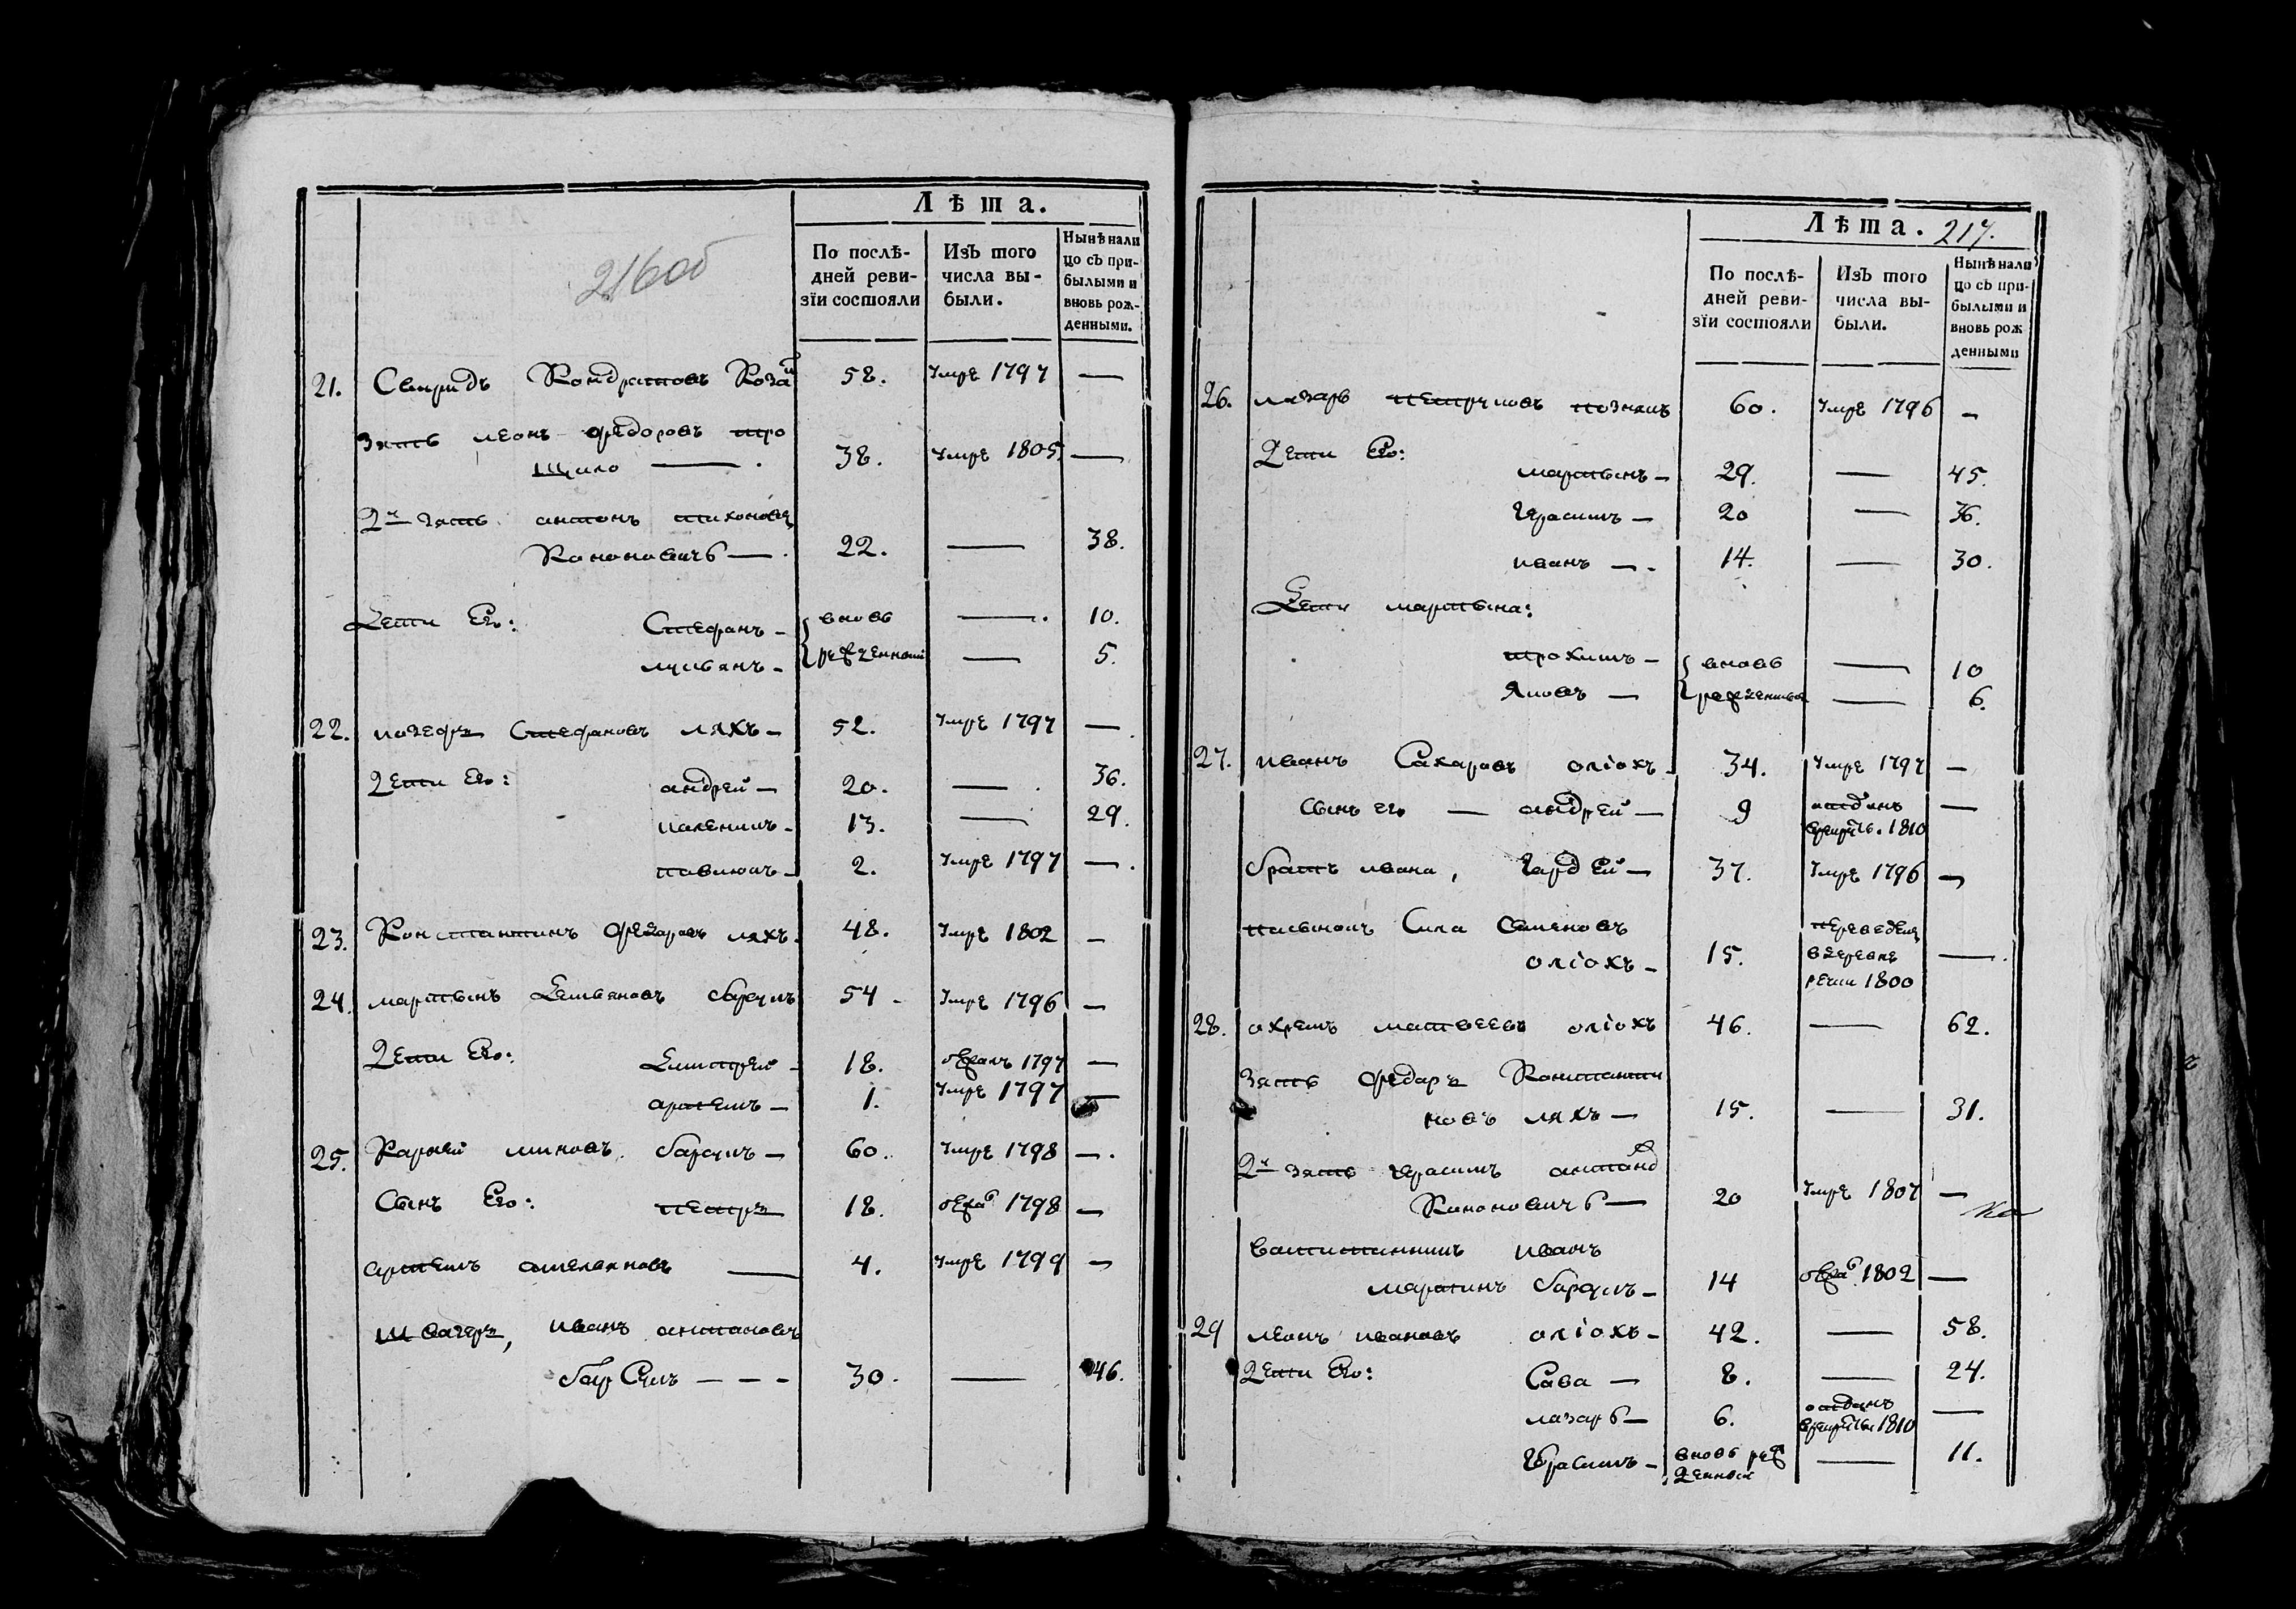 Лѣта.
216об
По послѣ-
дней реви-
зїи состояли
Изъ того
числа вы-
были.
Нынѣ нали
цо съ при-
былыми и
вновь рож-
денными.
21. Свиридъ Кондратовъ 58. Умре 1797 —
Зять леонъ федоровъ тро
щило — . 38. Умре 1805. —
2й зять антонъ тихоновъ
Кононовичъ — . 22. — 38.
Дети Его: Стефанъ — вновь — . 10.
лукьянъ — рожденный — 5.
22. иозефъ Стефановъ ляхъ — 52. Умре 1797 — .
Дети Его: андрей — 20. — . 36.
13. — 29.
2. Умре 1797 — .
23. Константинъ федоровъ ляхъ. 48. Умре 1802 —
24. мартынъ Демьяновъ 54 - Умре 1796 —
Дети Его: 18. 1797 —
артемъ — 1. Умре 1797 —
25. миновъ. 60. Умре 1798 — .
Сынъ Его: петръ 18. 1798 —
артемъ омеляновъ — 4. Умре 1799 —
швагеръ, иванъ антоновъ
— - - 30. — 46.
Лѣта. 217.
По послѣ-
дней реви-
зїи состояли
Изъ того
числа вы-
были.
Нынѣ нали
цо съ при-
былыми и
вновь рож
денными
26. лазарь 60. Умре 1796 —
Дети Его:
мартынъ — 29. — 45.
Герасимъ — 20 — 36.
иванъ — . 14. — 30.
Дети мартына:
трохимъ — вновь — 10
Яковъ — рожденные — 6.
27. иванъ Сахаровъ оліохъ — 34. Умре 1797 —
Сынъ его — андрей — 9 отданъ —
врекруты. 1810
братъ ивана, Гордей — 37. Умре 1796 —
Сила Семеновъ переведенъ
оліохъ — 15. вдеревне — .
1800
28. охремъ матвеевъ оліохъ 46. — 62.
Зять федоръ Константи
новъ ляхъ — 15. — 31.
2й зять Герасимъ
Кононовичъ — 20 Умре 1807 —
иванъ
мартинъ 14 1802 —
29 леонъ ивановъ оліохъ — 42. — 58.
Дети Его: Сава — 8. — 24.
лазарь — 6. отданъ —
врекруты 1810
Герасимъ — вновь рож — 11.
денный